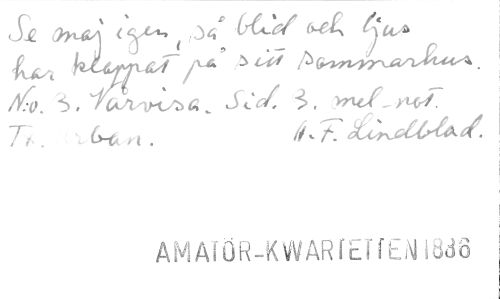 Se maj igen, så blid och ljus
har klappat på sitt sommarhus.
N:o. 3. Vårvisa. Sid. 3. mel-not.
A.F. Lindblad.
AMATÖR-KWARTETTEN 1886